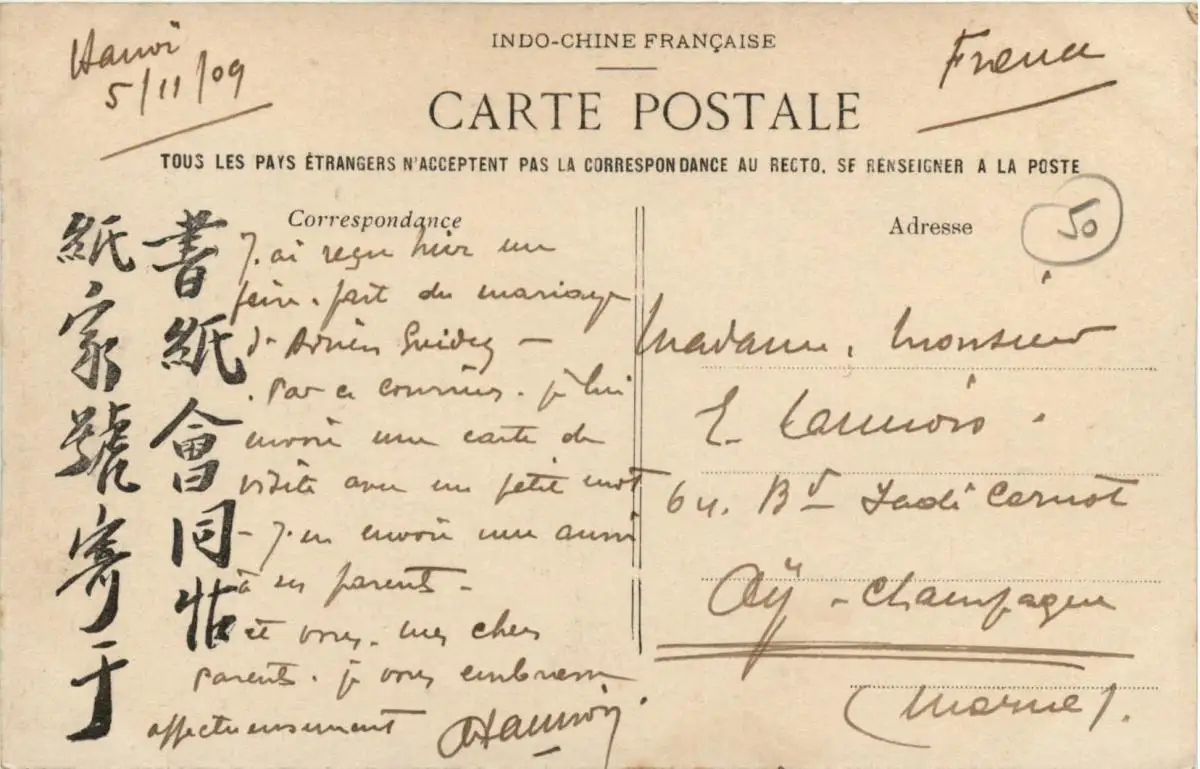 Hanoï
5/11/09
INDO-CHINE FRANÇAISE
France
CARTE POSTALE
TOUS LES PAYS ÉTRANGERS N'ACCEPTENT PAS LA CORRESPONDANCE AU RECTO, SE RENSEIGNER A LA POSTE
Correspondance
Adresse
50
書紙會同帖
紙家號寄于
J'ai reçu hier un
faire-part du mariage
d'Adrien Guidez —
. Par ce courrier. je lui
envoie une carte de
visite avec un petit mot
- J'en envoie une aussi
à ses parents -
et vous. mes chers
parents. je vous embrasse
affectueusement
Madame, Monsieur
E.
64. Bd Sadi Carnot
Aÿ - Champagne
(Marne).